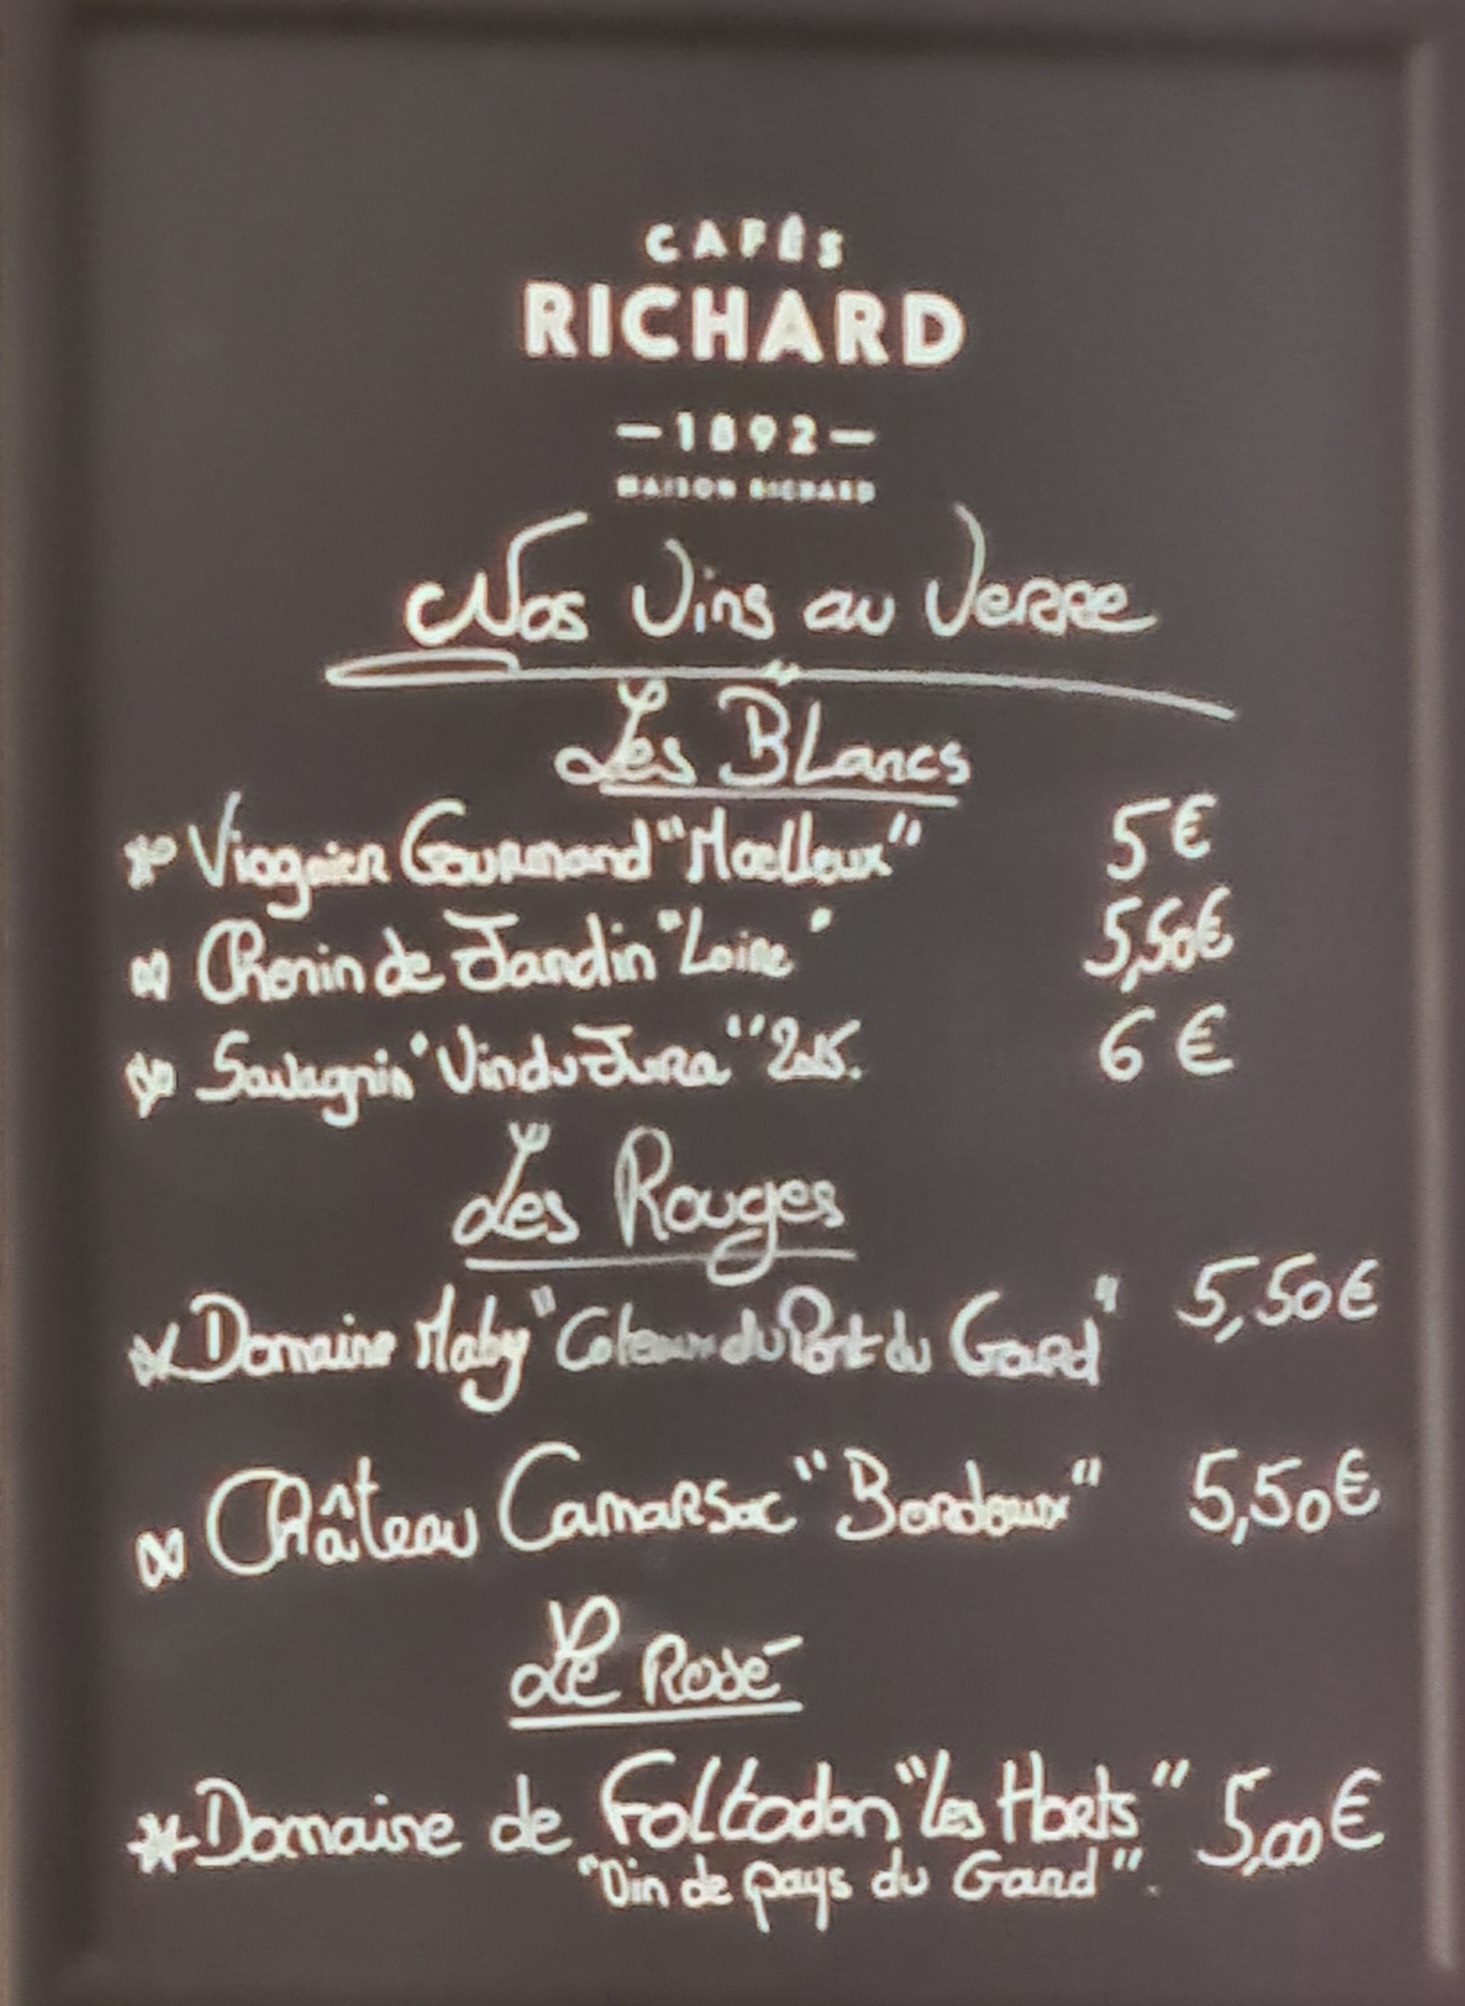 CAFÉS
RICHARD
—1892—
MAISON RICHARD
Nos Vins au Verre
Les Blancs
Viognier Gourmand "Moelleux" 5€
Chenin de Jardin "Loire" 5,50€
Savagnin "Vin du Jura" 2015. 6€
Les Rouges
Domaine Maby "Coteaux du Pont du Gard" 5,50€
Château Camarsac "Bordeaux" 5,50€
Le Rosé
Domaine de "Les Horts" 5,00€
"Vin de pays du Gard".